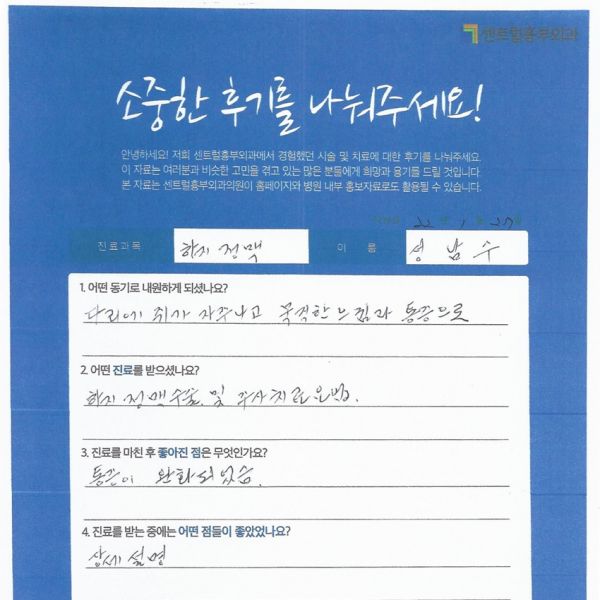 센트럴흉부외과
소중한 후기를 나눠주세요!
안녕하세요! 저희 센트럴흉부외과에서 경험했던 시술 및 치료에 대한 후기를 나눠주세요.
이 자료는 여러분과 비슷한 고민을 겪고 있는 많은 분들에게 희망과 용기를 드릴 것입니다.
본 자료는 센트럴흉부외과의원이 홈페이지와 병원 내부 홍보자료로도 활용될 수 있습니다.
22 년 1 월 27 일
진료과목 하지정맥 이 름 성남수
1. 어떤 동기로 내원하게 되셨나요?
다리에 쥐가 자주나고 묵직한 느낌과 통증으로
2. 어떤 진료를 받으셨나요?
하지정맥수술 및 주사치료요법.
3. 진료를 마친 후 좋아진 점은 무엇인가요?
통증이 완화되었슴.
4. 진료를 받는 중에는 어떤 점들이 좋았었나요?
상세설명